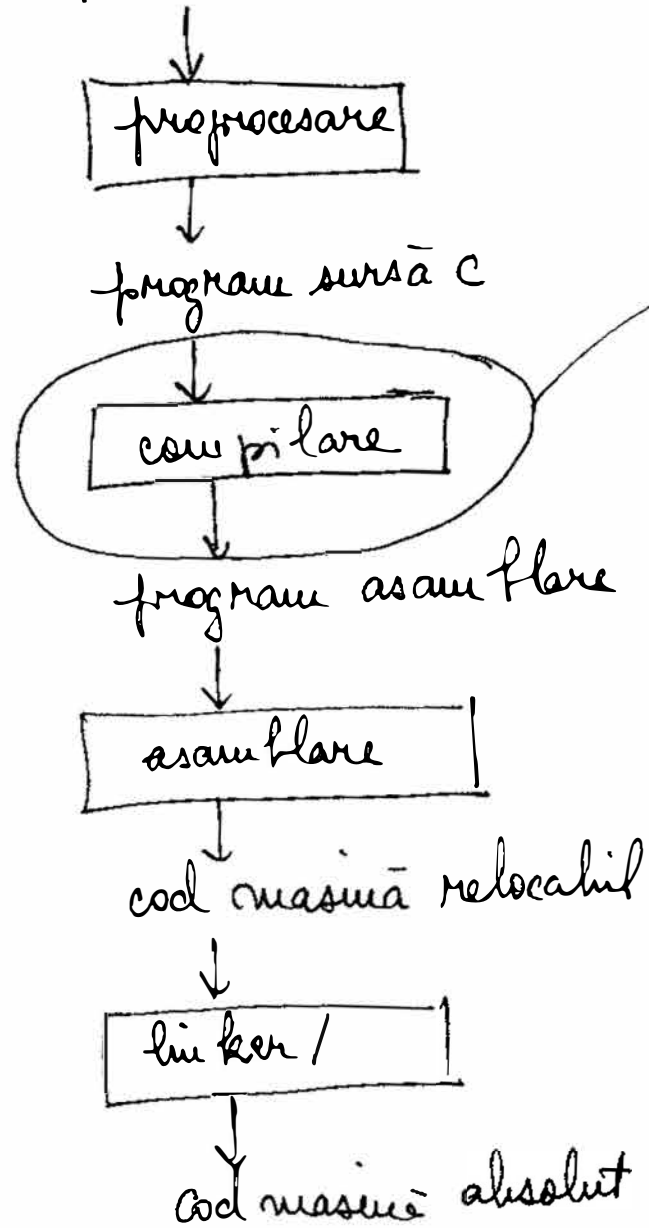 preprocesare
program sursă C
compilare
program asamblare
asamblare
cod mașină relocabil
linker /
cod mașină absolut